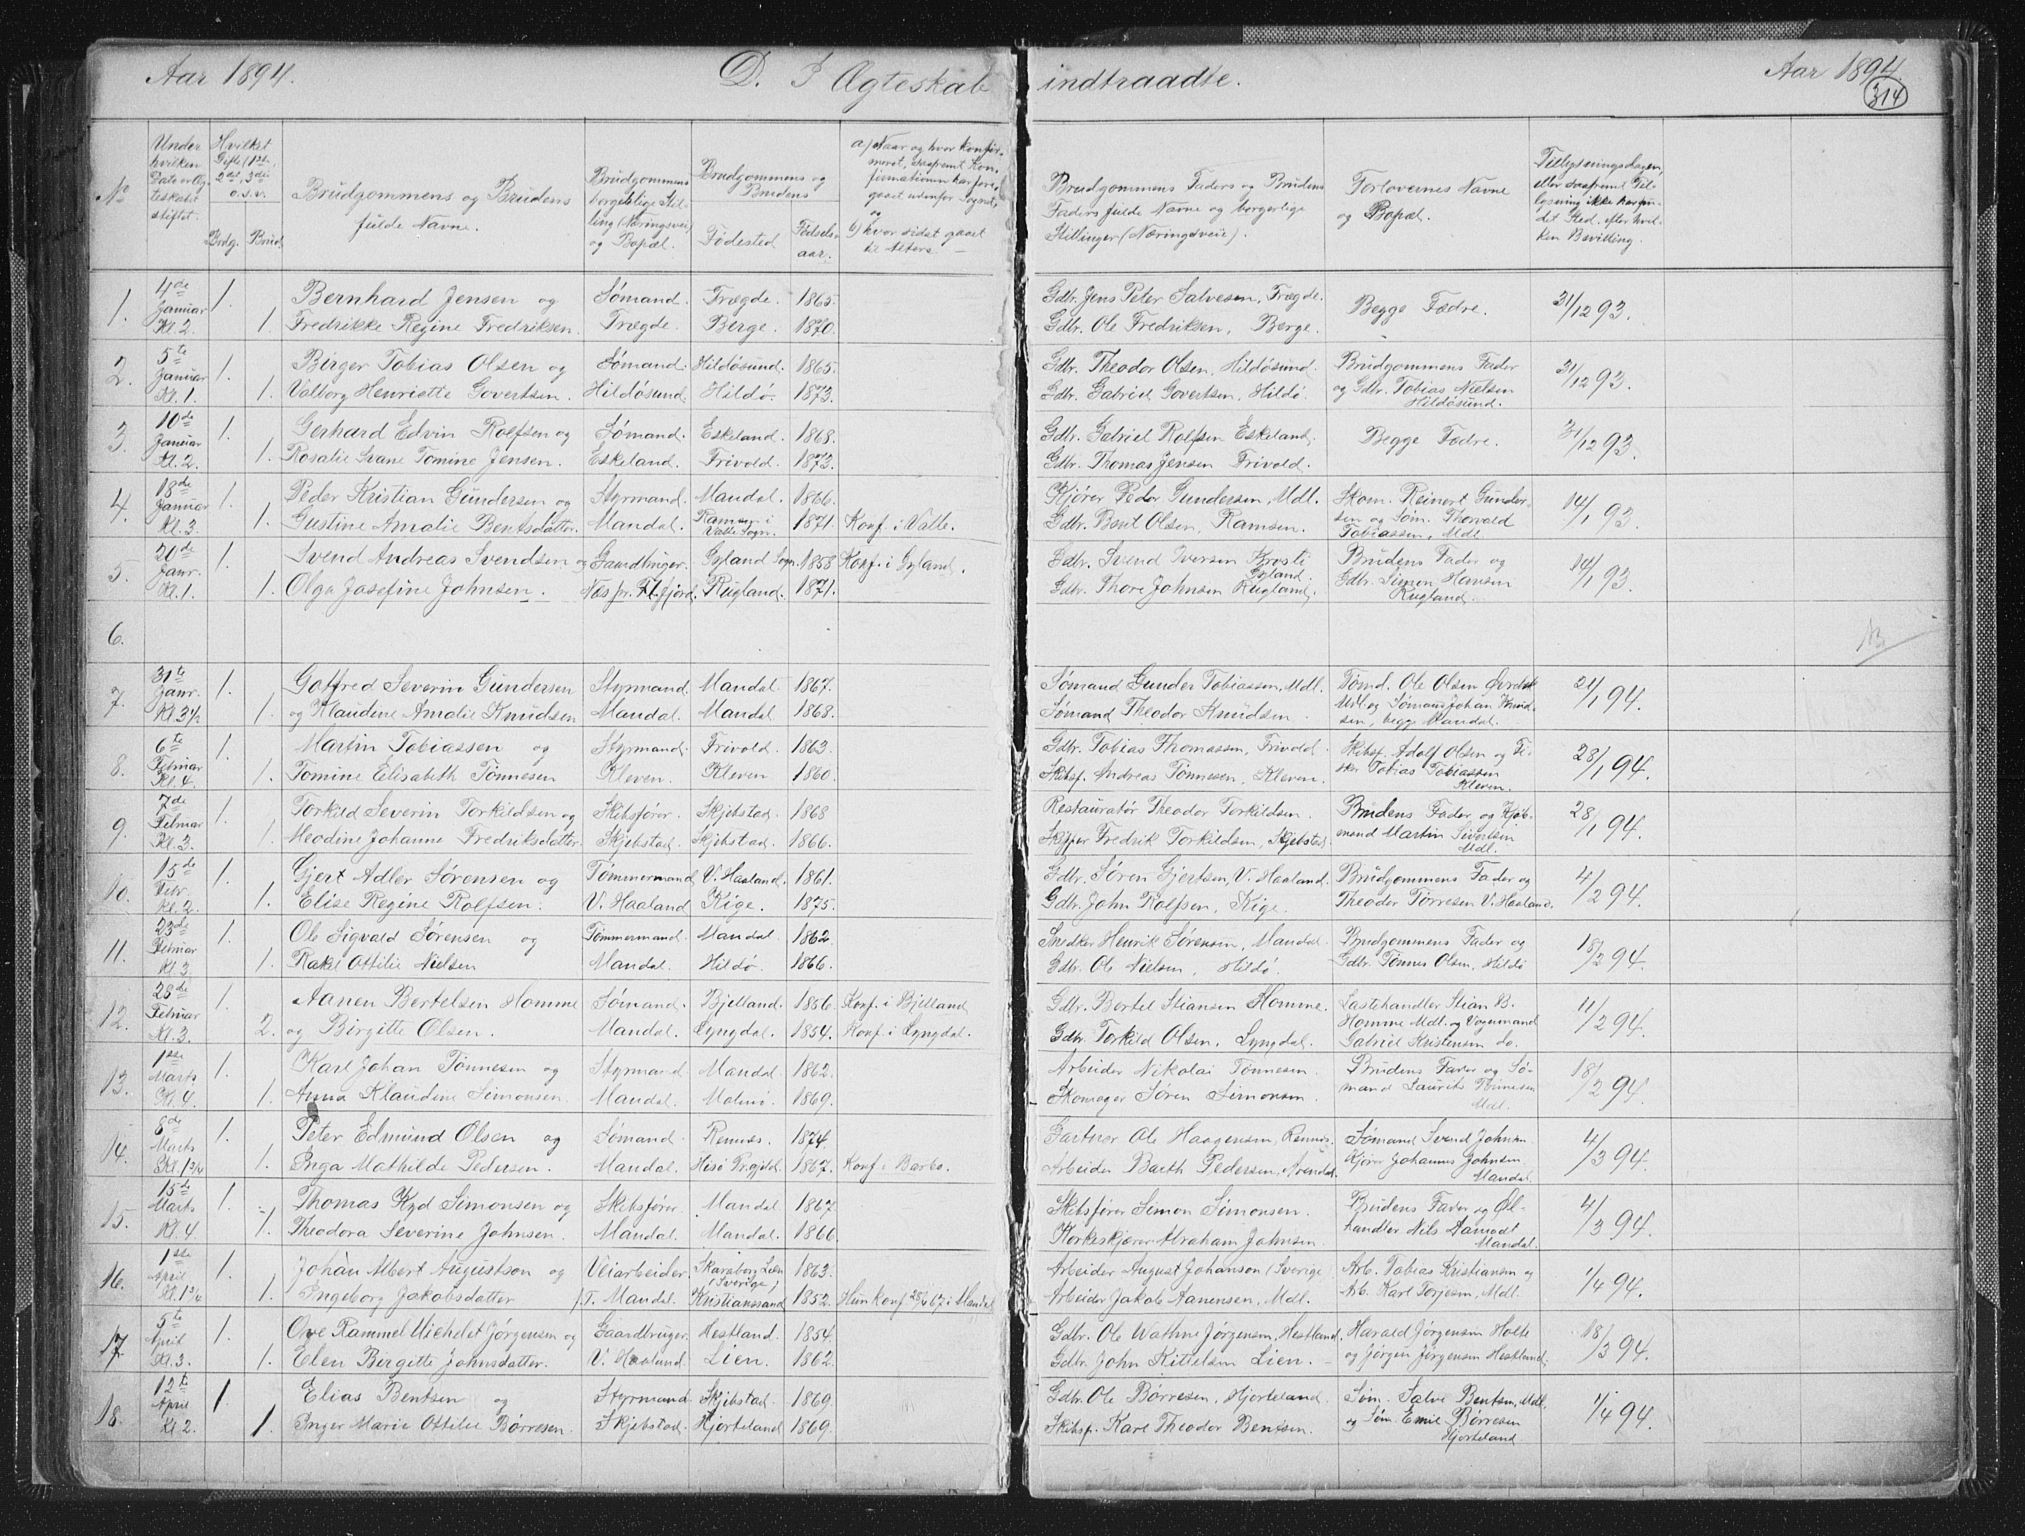 Aar 1894.
D. I Ægteskab indtraadte.
Aar 1894.
314
No
Under hvilken Dato er Ægteskabet stiftet.
Hvilket Gifte (1ste, 2det, 3die o.s.v.
Brdg. Brud
Brudgommens og Brudens fulde Navne.
Brudgommens borgerlige Stilling (Næringsvei) og Bopæl.
Brudgommens og Brudens
Fødested
Fødselsaar.
a) Naar og hvor konfirmeret, saafremt Konfirmationen har foregaaet udenfor Sognet, og
b) hvor sidst gaaet til Alters.
Brudgommens Faders og Brudens Faders fulde Navne og borgerlige Stillinger (Næringsveie).
Forlovernes Navne og Bopæl.
Tillysningsdagen, eller saafremt Tillysning ikke har fundet Sted, efter hvilken Bevilling.
1. 4de Januar Kl. 2. 1. Bernhard Jensen og Sømand. Trægde. 1865. Gdbr. Jens Peter Salvesen, Trægde. Begge Fædre. 31/12 93.
1. Fredrikke Regine Fredriksen. Trægde. Berge. 1870. Gdbr. Ole Fredriksen, Berge.
2. 5te Januar Kl. 1. 1. Birger Tobias Olsen og Sømand. Hildøsund. 1865. Gdbr. Theodor Olsen, Hildøsund. Brudgommens Fader 31/12 93.
1. Valborg Henriette Govertsen. Hildøsund. Hildø. 1873. Gdbr. Gabriel Govertsen, Hildø. og Gdbr. Tobias Nielsen Hildøsund.
3. 10de Januar Kl. 2. 1. Gerhard Edvin Rolfsen og Sømand. Eskeland. 1868. Gdbr. Gabriel Rolfsen Eskeland. Begge Fædre. 31/12 93.
1. Rosalie Svane Tomine Jensen. Eskeland. Frivold. 1873. Gdbr. Thomas Jensen Frivold.
4. 18de Januar Kl. 3. 1. Peder Kristian Gundersen og Styrmand. Mandal. 1866. Kjører Peder Gundersen, Mdl. Skom. Reinert Gunder- 14/1 93.
1. Gustine Amalie Bentsdatter. Mandal. Ramsen i Valle Sogn. 1871. Konf. i Valle. Gdbr. Bent Olsen, Ramsen. sen og Søm. Thorvald Tobiassen, Mdl.
5. 20de Janr. Kl. 1. 1. Svend Andreas Svendsen og Gaardbruger. Gyland Sogn. 1858 Konf. i Gyland. Gdbr. Svend Iversen Gyland. Brudens Fader og 14/1 93.
1. Olga Josefine Johnsen. Rugland. 1871. Gdbr. Thore Johnsen Rugland. Gdbr. Simon Hansen Rugland.
6.
7. 31te Janr. Kl. 3½ 1. Gotfred Severin Gundersen Styrmand. Mandal. 1867. Sømand Gunder Tobiassen, Mdl. Tømd. Ole Olsen 21/1 94.
1. og Klaudine Amalie Knudsen Mandal. Mandal 1868. Sømand Theodor Knudsen. Mdl. og Sømand Johan Knudsen, begge Mandal.
8. 6te Februar Kl. 4. 1. Martin Tobiassen og Styrmand. Frivold. 1863. Gdbr. Tobias Thomassen, Frivold. Skibsf. Adolf Olsen og Fi- 28/1 94.
1. Tomine Elisabeth Tønnesen Kleven. Kleven 1860. Skibsf. Andreas Tønnesen, Kleven. sker Tobias Tobiassen Kleven.
9. 7de Februar Kl. 3. 1. Torkild Severin Torkildsen og Skibsfører. Skjebstad. 1868 Restauratør Theodor Torkildsen. Brudens Fader og Kjøb- 28/1 94.
1. Meodine Johanne Fredriksdatter. Skjebstad. Skjebstad. 1866. Skipper Fredrik Torkildsen, Skjebstad. mand Martin Sivertsen Mdl.
10. 15de Febr. Kl. 2. 1. Gjert Adler Sørensen og Tømmermand V. Haaland. 1861. Gdbr. Søren Gjertsen, V. Haaland. Brudgommens Fader og 4/2 94.
1. Elise Regine Rolfsen. V. Haaland Kige. 1875. Gdbr. John Rolfsen, Kige. Theodor Tørresen V. Haaland.
11. 23de Februar Kl. 3 1. Ole Sigvald Sørensen og Tømmermand. Mandal. 1862. Snedker Henrik Sørensen, Mandal. Brudgommens Fader og 18/2 94.
1. Rakel Ottilie Nielsen Mandal. Hildø. 1866. Gdbr. Ole Nielsen, Hildø. Gdbr. Tønnes Olsen, Hildø
12. 28de Februar Kl. 3. 1. Aanen Bertelsen Homme Sømand. Bjelland. 1856. Konf. i Bjelland Gdbr. Bertel Stiansen Homme. Lastehandler Stian B. 11/2 94.
2. og Birgitte Olsen. Mandal. Lyngdal. 1854. Konf. i Lyngdal. Gdbr. Torkild Olsen, Lyngdal. Homme Mdl. og Vognmand Gabriel Kristensen do.
13. 1ste Marts Kl. 4. 1. Karl Johan Tønnesen og Styrmand Mandal. 1862. Arbeider Nikolai Tønnesen. Brudens Fader og Sø- 18/2 94.
1. Anna Klaudine Simonsen. Mandal. Malmø. 1869. Skomager Søren Simonsen. mand Laurits Tønnesen Mdl.
14. 8de Marts Kl. 1¾ 1. Peter Edmund Olsen og Sømand. Remnes. 1874. Gartner Ole Haagensen, Remnes. Sømand Svend Johnsen 4/3 94.
1. Inga Mathilde Pedersen. Mandal. Hisø Prgjld. 1867. Konf. i Barbo. Arbeider Barth Pedersen, Arendal. Kjører Johannes Johnsen Mandal.
15. 15de Marts Kl. 4 1. Thomas Kyd Simonsen og Skibsfører. Mandal. 1867. Skibsfører Simon Simonsen. Brudens Fader og Øl- 4/3 94.
1. Theodora Severine Johnsen. Mandal. Mandal. 1866. Korkeskjærer Abraham Johnsen. handler Nils Aamodt Mandal.
16. 1ste April Kl. 1¾ 1. Johan Albert Augustson og Veiarbeider. Skaraborg Län (Sverige) 1863. Arbeider August Johanson (Sverige) Arb. Tobias Kristiansen og 1/4 94.
1. Ingeborg Jakobsdatter f.T. Mandal. Kristianssand 1852. Hun konf. 28/4 67 i Mandal Arbeider Jakob Aanensen, Mdl. Arb. Karl Torjesen, Mdl.
17. 5te April Kl. 3. 1. Ove Rammel Michelet Jørgensen og Gaardbruger. Hestland. 1854. Gdbr. Ole Wathne Jørgensen, Hestland. Harald Jørgensen Holte 18/3 94.
1. Elen Birgitte Johnsdatter. V. Haaland. Lien. 1862. Gdbr. John Kittelsen Lien. og Jørgen Jørgensen Hestland.
18. 12te April Kl 2. 1 Elias Bentsen og Styrmand Skjebstad. 1869. Gdbr. Ole Børresen, Hjorteland. Søm. Salve Bentsen, Mdl. 1/4 94.
1 Inger Marie Ottilie Børresen. Skjebstad. Hjorteland 1869. Skibsf. Karl Theodor Bentsen. og Søm. Emil Børresen Hjorteland